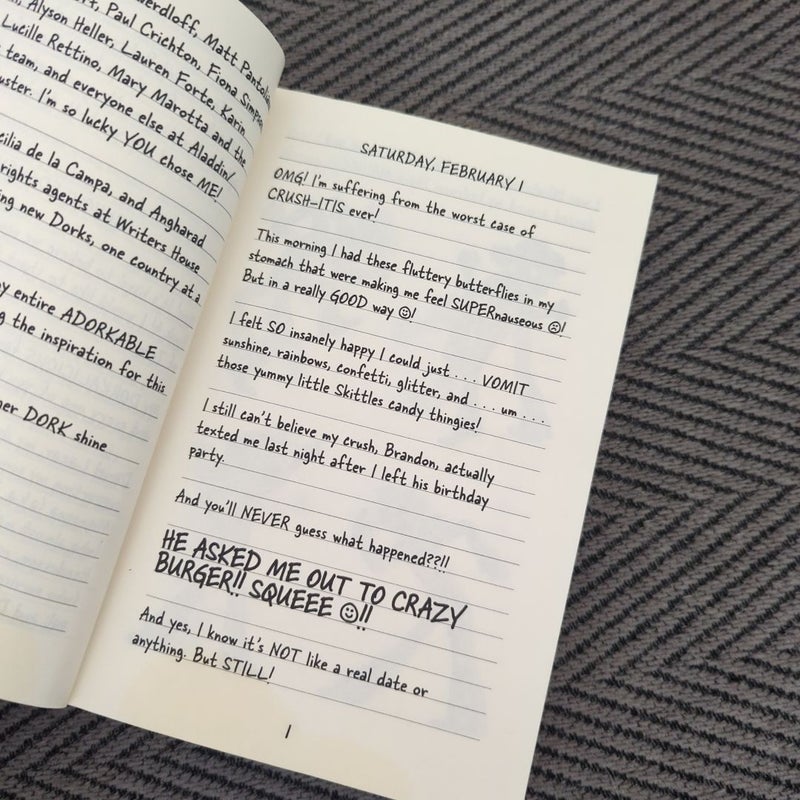 erdloff, Matt Pantoli
Paul Crichton, Fiona Simps
Alyson Heller, Lauren Forte, Karin
Lucille Rettino, Mary Marotta and the
team, and everyone else at Aladdin/
uster. I'm so lucky YOU chose ME!
cilia de la Campa, and Angharad
rights agents at Writers House
ng new Dorks, one country at a
y entire ADORKABLE
g the inspiration for this
ner DORK shine
SATURDAY, FEBRUARY 1
OMG! I'm suffering from the worst case of
CRUSH-ITIS ever!
This morning I had these fluttery butterflies in my
stomach that were making me feel SUPERnauseous ☹!
But in a really GOOD way ☺!
I felt SO insanely happy I could just . . . . VOMIT
sunshine, rainbows, confetti, glitter, and . . . um . . .
those yummy little Skittles candy thingies!
I still can't believe my crush, Brandon, actually
texted me last night after I left his birthday
party.
And you'll NEVER guess what happened??!!
HE ASKED ME OUT TO CRAZY
BURGER!! SQUEEE ☺!!
And yes, I know it's NOT like a real date or
anything. But STILL!
1